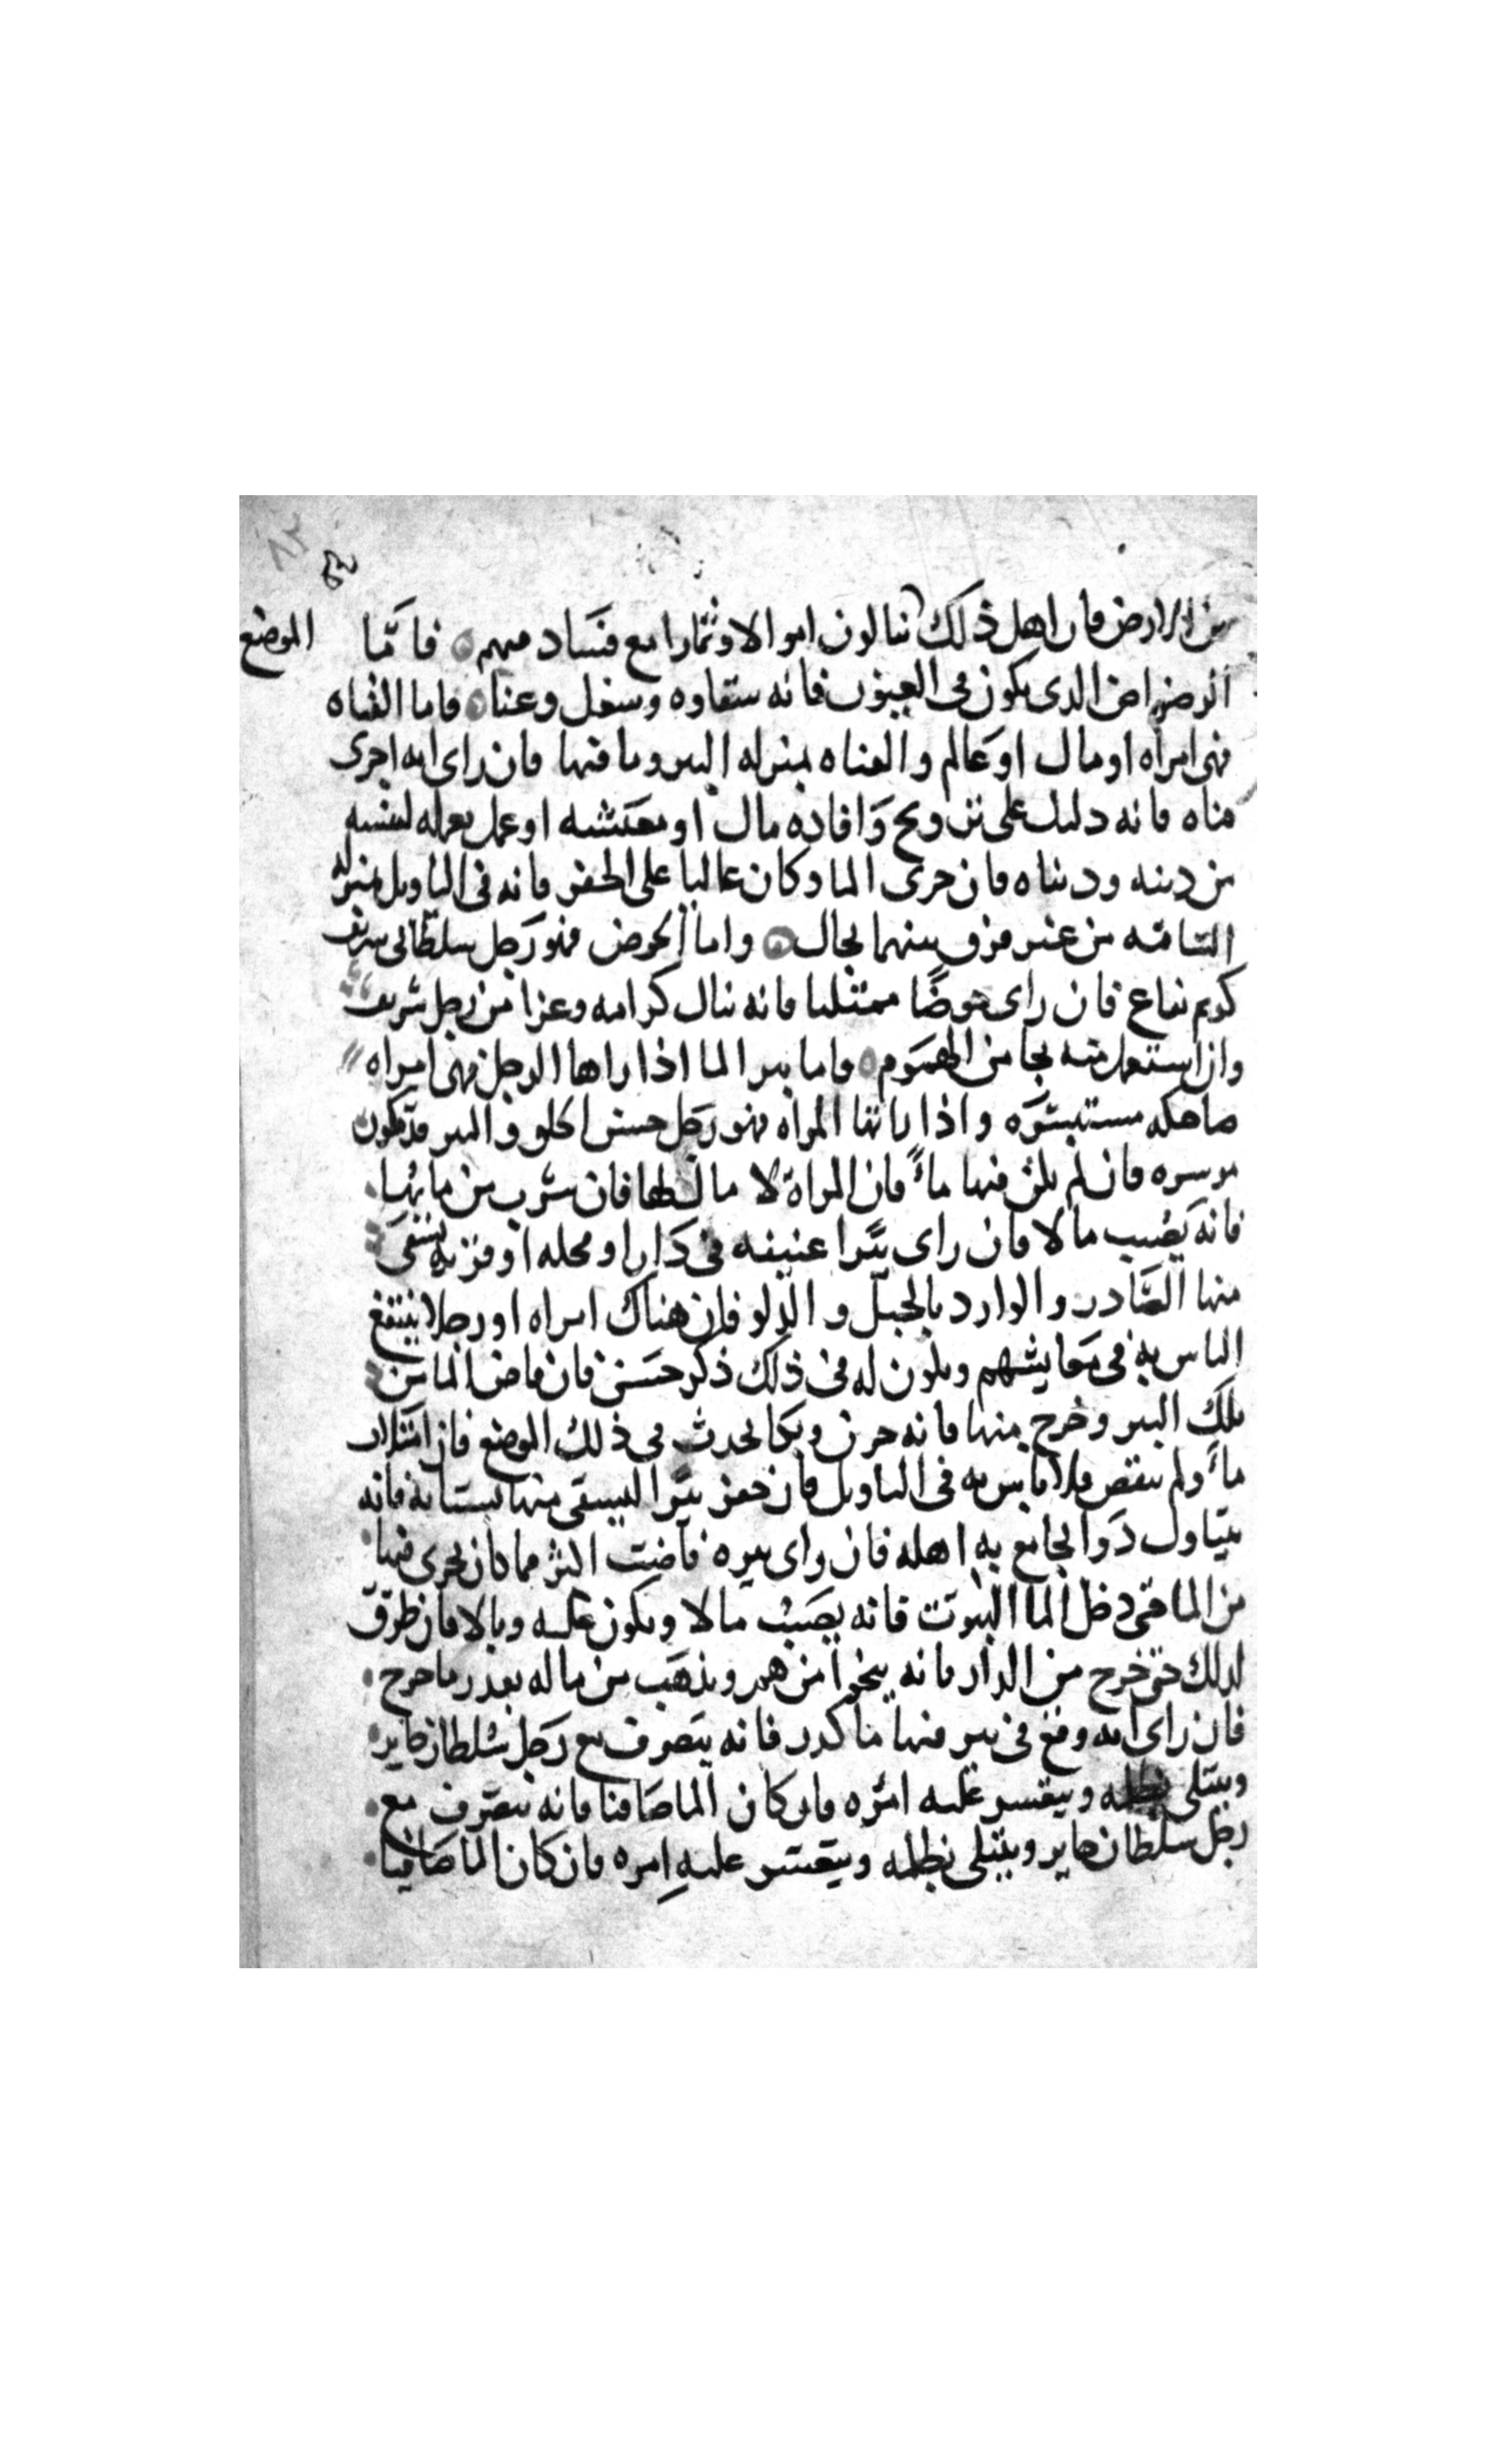 من الارض فان اهل ذلك ينالون اموالا وثمارا مع فساد فيهم فاما الموضع
الرضراض الذى يكون فى العيون فانه شقاوه وشغل وعنا واما القناه
فهى امراه او مال او عالم والقناه بمنزله البير وما فيها فان راى انه اجرى
قناه فانه دليل على تزويج وافاده مال او معيشه او عمل يعمله لنفسه
من دينه ودنياه فان جرى الما وكان عاليا على الحفر فانه فى التاويل بمنزلة
الساقيه من غير فرق بينهما بحال واما الحوض فهو رجل سلطانى شريف
كريم نفاع فان راى حوضًا ممتليا فانه ينال كرامه وعزا من رجل شريف
وان استعمل منه نجا من الهموم واما بير الما اذا راها الرجل فهى امراه
ضاحكه مستبشره واذا راتها المراه فهو رجل حسن الخلق والبير قد تكون
موسره فان لم يكن فيها ماً فان المراة لا مال لها فان شرب من مايها
فانه يصيب مالا فان راى بئرا عتيقه فى دار او محله او قريه يستقى
منها الصادر والوارد بالحبل والدلو فان هناك امراه او رجلا ينتفع
الناس به فى معايشهم ويكون له فى ذلك ذكر حسن فان فاض الما من
تلك البير وخرج منها فانه حزن وبكا يحدث فى ذلك الموضع فان امتلات
ماً ولم تفض فلا باس به فى التاويل فان حفر بئرا ليسقى منها بستانه فانه
يتناول دوا يجامع به اهله فان راى بيره فاضت اكثر مما كان يجرى فيها
من الما حتى دخل الما البيوت فانه يصيب مالا ويكون عليه وبالا فان طرق
لذلك حتى خرج من الدار فانه ينجوا من هم ويذهب من ماله بقدر ما خرج
فان راى انه وقع فى بير فيها ما كدر فانه يتصرف مع رجل سلطان جاير
ويبتلى بظلمه ويتعسر عليه امره فان كان الما صافيا فانه يتصرف مع
رجل سلطان جاير ويبتلى بظلمه ويتعسر عليه امره فان كان الما صافيا